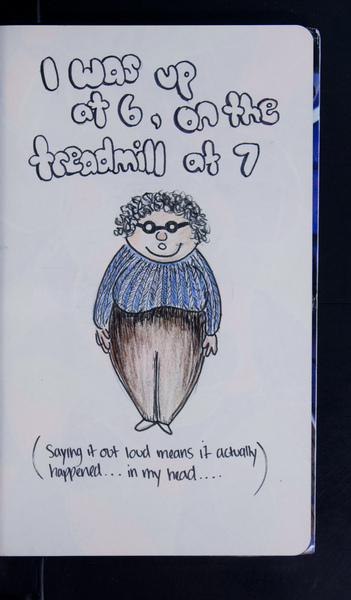 I was up
at 6, on the
treadmill at 7
(Saying it out loud means it actually
happened... in my head....)